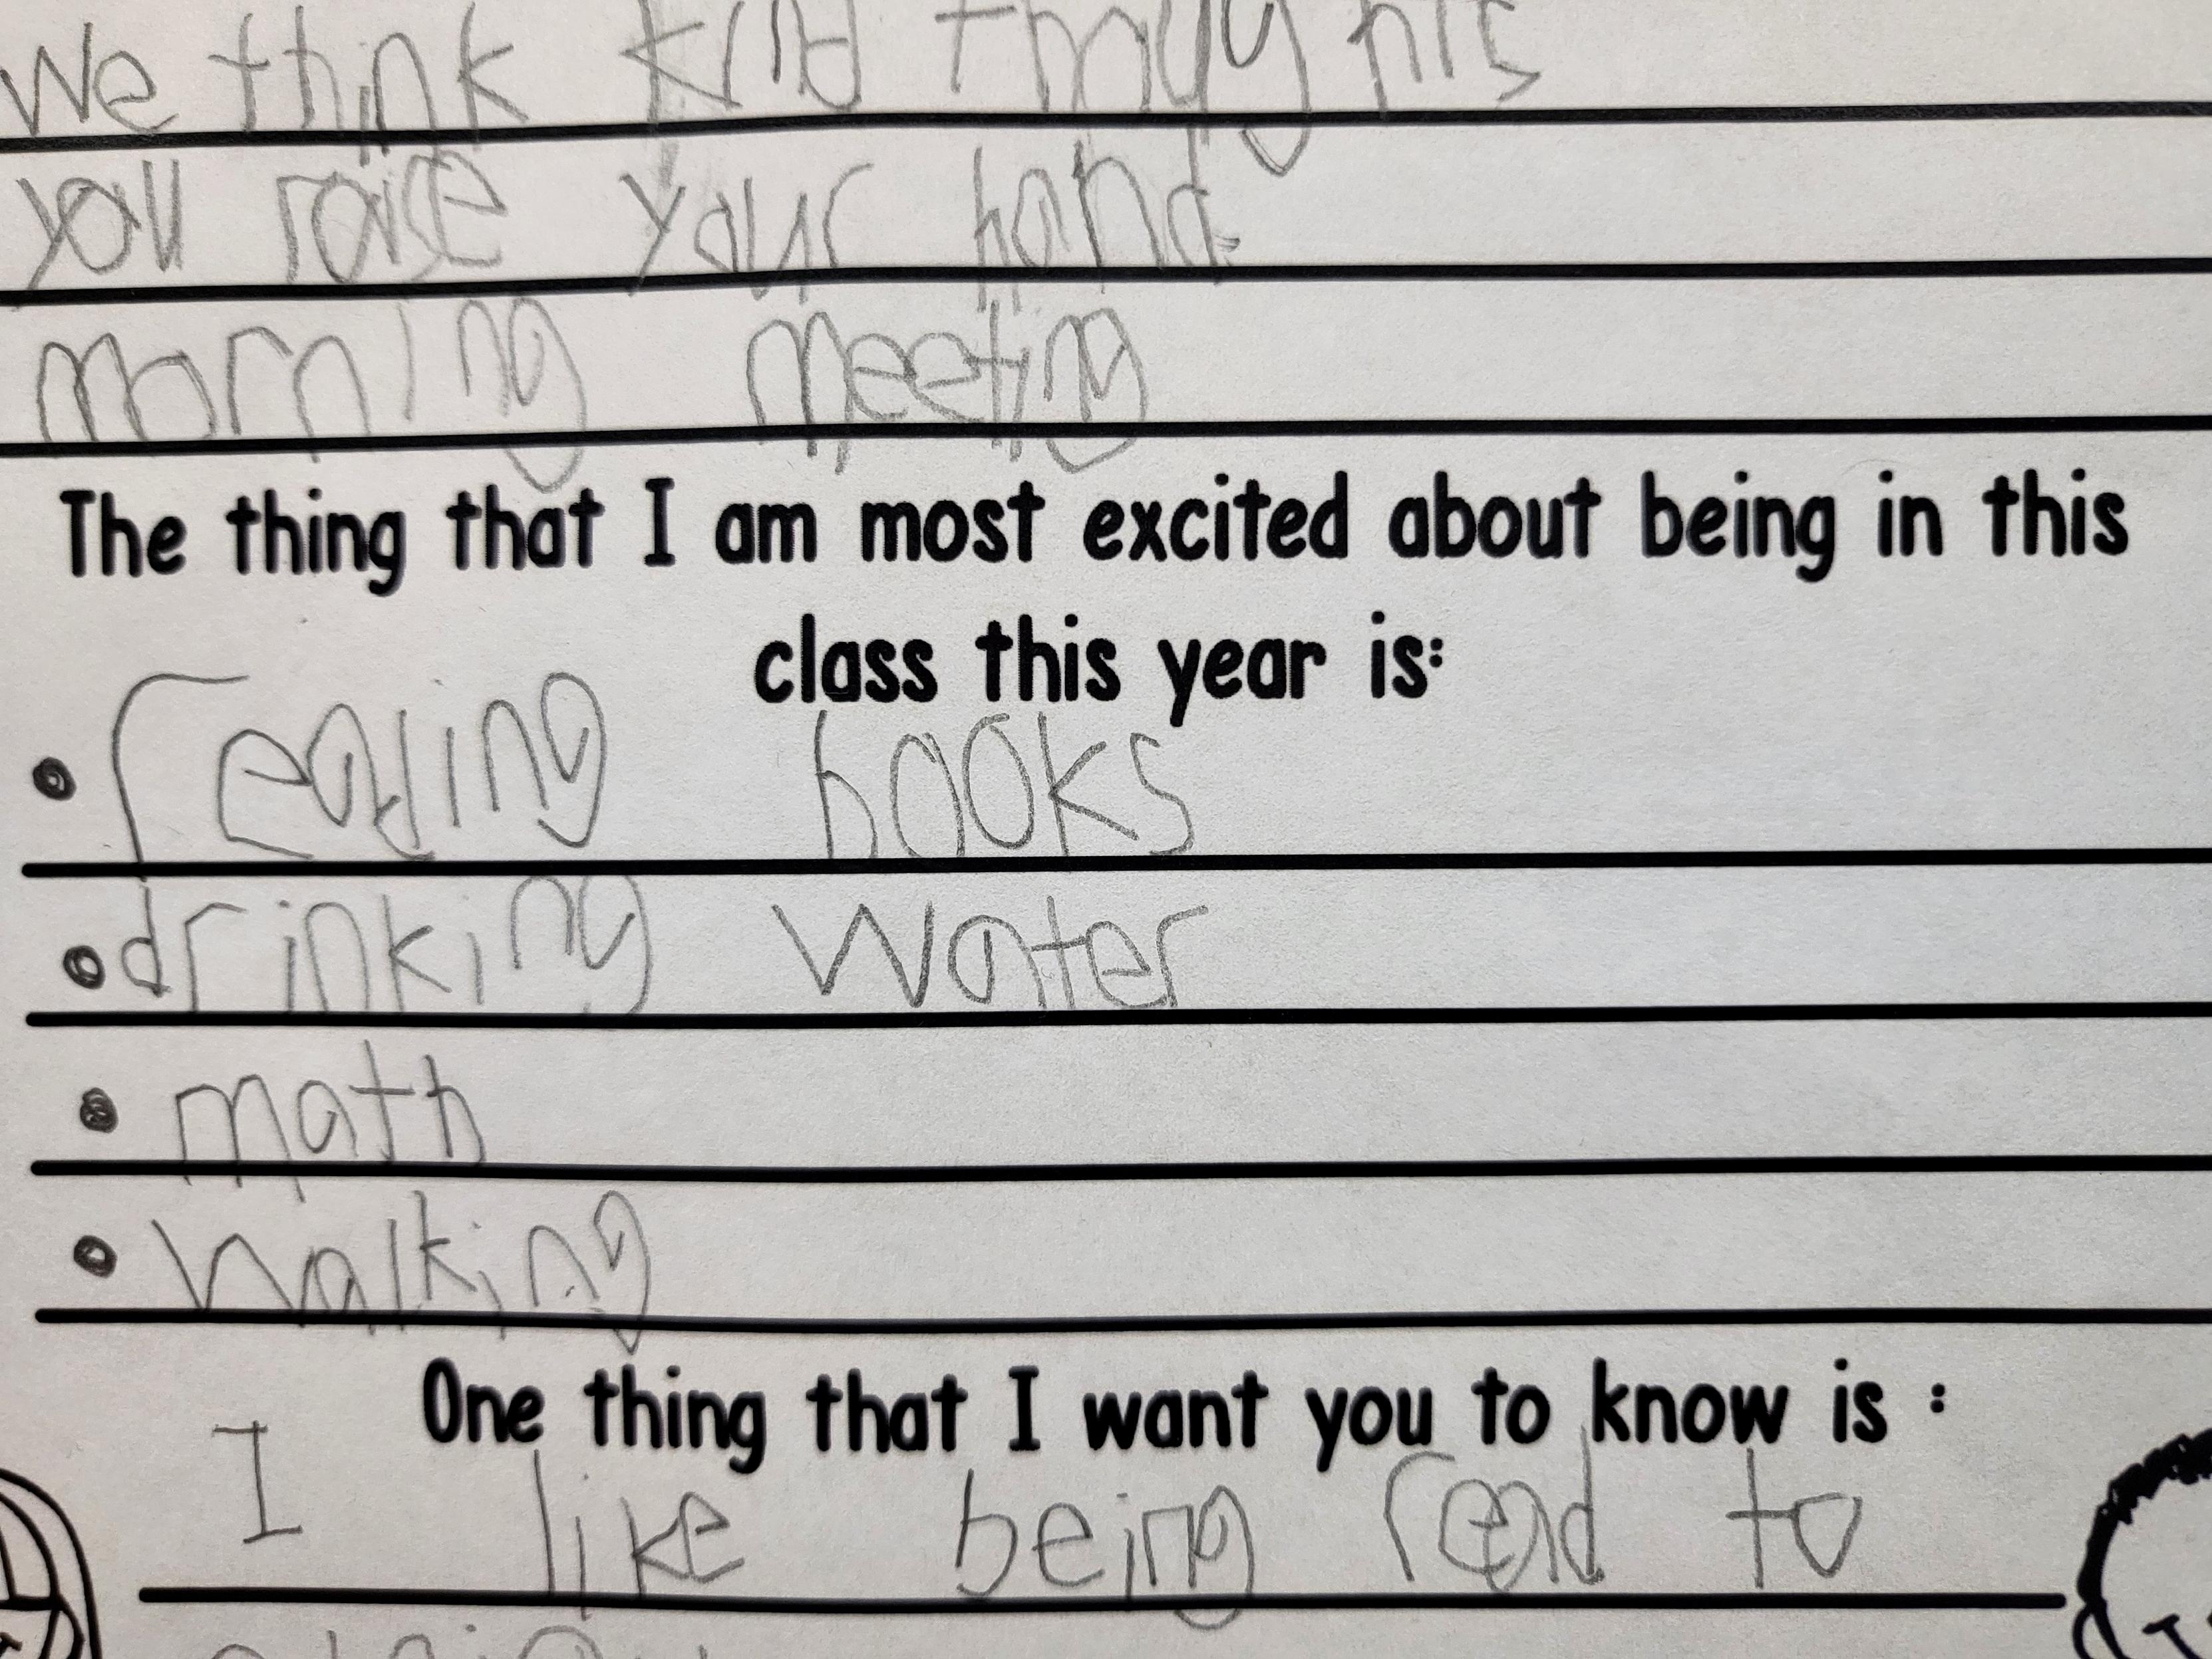 We think kind thoughts
you raise your hand
morning meeting
The thing that I am most excited about being in this
class this year is:
• reading books
• drinking water
• math
• walking
One thing that I want you to know is :
I like being read to